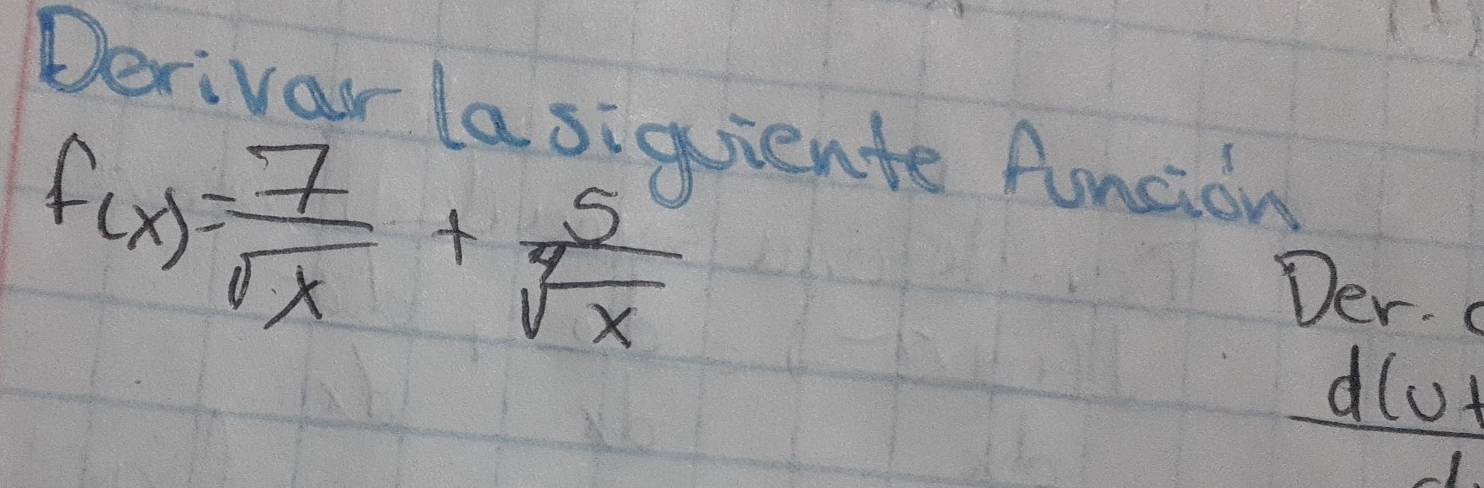 Derivar la siguiente función
f(x) = 7/√x + 5/∜x
Der.
d(u+